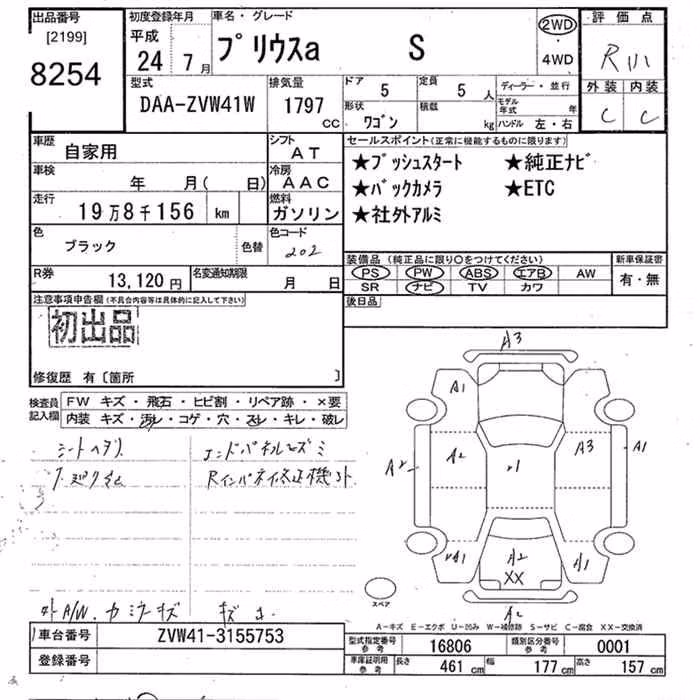 出品番号 初度登録年月 車名・グレード 2WD 評価点
[2199] 平成
8254 24 7月 プリウスa S 4WD R
型式 排気量 ドア 5 定員 5人 ディーラー・並行 外装 内装
DAA-ZVW41W 1797cc 形状 ワゴン 積載 kg モデル年式 年 C C
ハンドル 左・右
車歴 自家用 シフト AT セールスポイント(正常に機能するものに限ります)
車検 年 月( 日) 冷房 AAC ★プッシュスタート ★純正ナビ
走行 19万8千156 km 燃料 ガソリン ★バックカメラ ★ETC
★社外アルミ
色 ブラック 色替 色コード 202
装備品(純正品に限り○をつけてください) 新車保証書
R券 13,120円 名変通知期限 月 日 PS PW ABS エアB AW 有・無
SR ナビ TV カワ
注意事項申告欄(不具合内容等は具体的に記入して下さい) 後日品
初出品
修復歴 有〔箇所 〕
検査員記入欄 FW キズ・飛石・ヒビ割・リペア跡・×要
内装 キズ・汚レ・コゲ・穴・スレ・キレ・破レ
A3
A1
A2 A2 1 A3 A1
A1 A2 A1
XX
A2
スペア
A-キズ E-エクボ U-凹み W-補修跡 S-サビ C-腐食 XX-交換済
車台番号 ZVW41-3155753 型式指定番号 参考 16806 類別区分番号 参考 0001
登録番号 車庫証明用 参考 長さ 461cm 幅 177cm 高さ 157cm